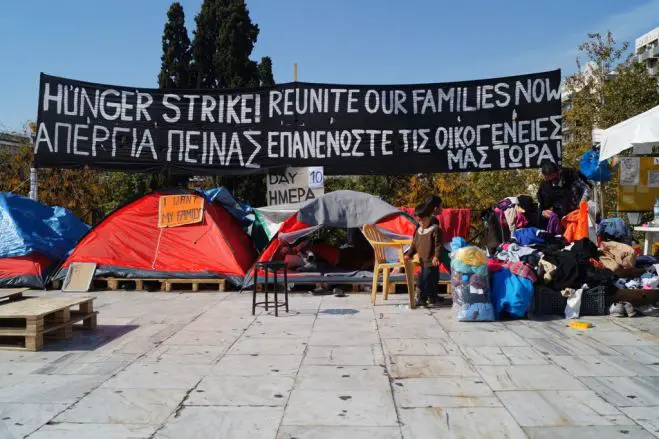 HUNGER STRIKE! REUNITE OUR FAMILIES NOW
ΑΠΕΡΓΙΑ ΠΕΙΝΑΣ ΕΠΑΝΕΝΩΣΤΕ ΤΙΣ ΟΙΚΟΓΕΝΕΙΕΣ
ΜΑΣ ΤΩΡΑ!
DAY 10
ΗΜΕΡΑ
I WANT
MY FAMILY